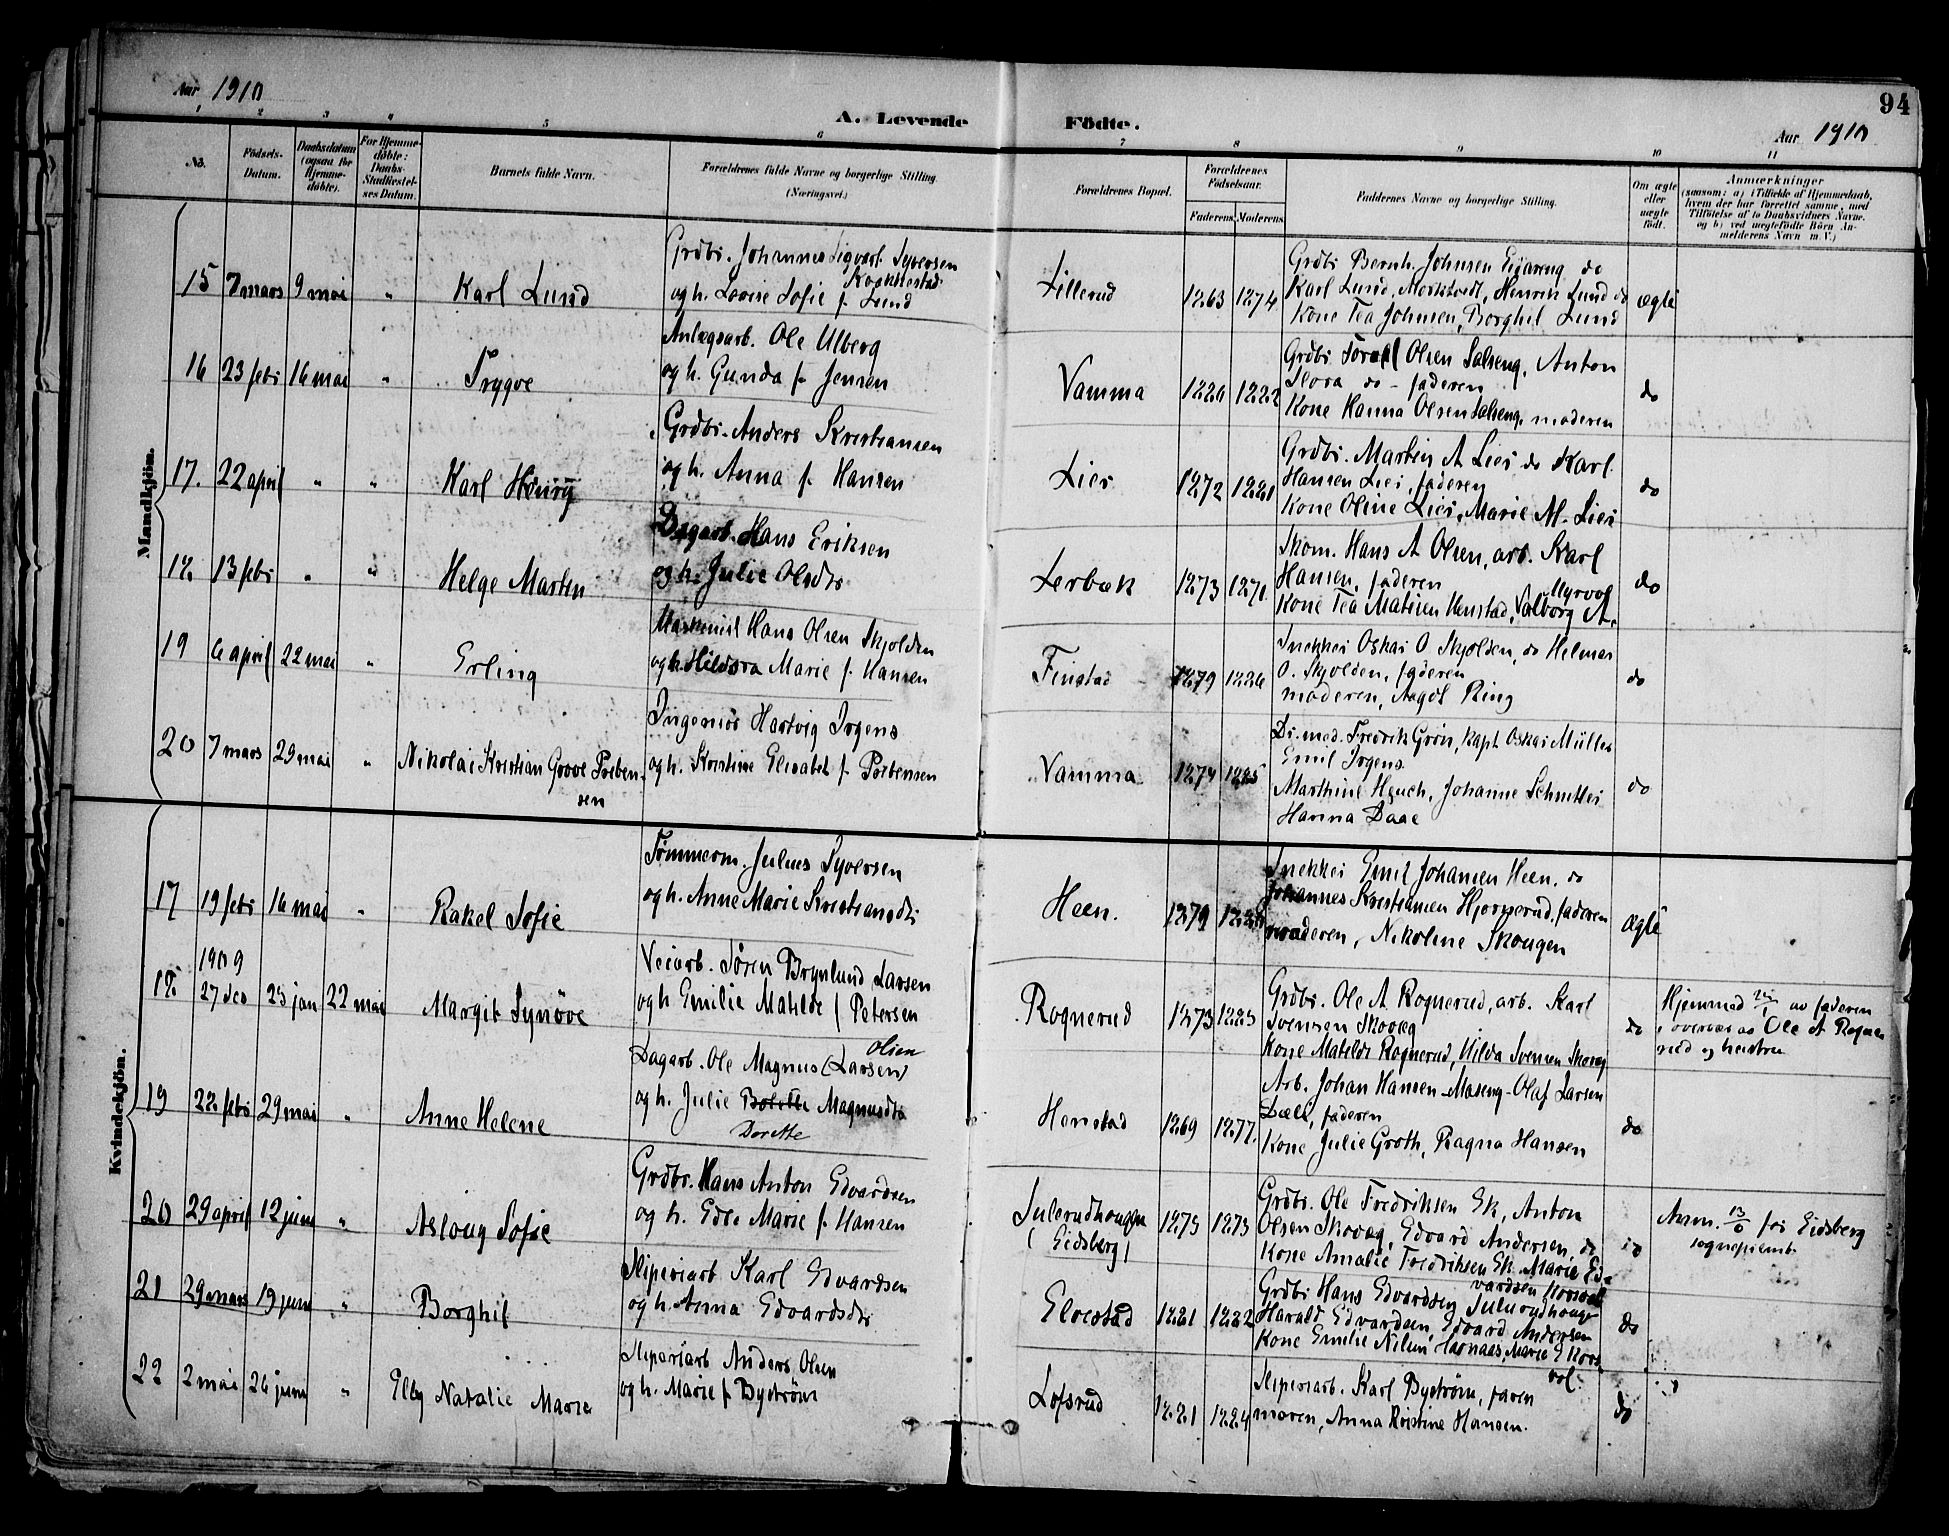 Aar 1910
A. Levende Födte.
94
Aar 1910
1 2 3 4 5 6 7 8 9 10 11
No.
Födsels-
Datum.
Daabsdatum
(ogsaa for
Hjemme-
döbte).
For Hjemme-
döbte:
Daabs-
Stadfæstel-
ses Datum.
Barnets fulde Navn.
Forældrenes fulde Navne og borgerlige Stilling
(Næringsvei.)
Forældrenes Bopæl.
Forældrenes
Födselsaar.
Faderens Moderens
Faddernes Navne og borgerlige Stilling.
Om ægte
eller
uægte
födt.
Anmærkninger
(saasom: a) i Tilfælde af Hjemmedaab,
hvem der har forrettet samme, med
Tilföielse af to Daabsvidners Navne.
og b) ved uægtefödte Börn An-
melderens Navn m. V.)
Mandkjön.
15 7 mars 9 mai " Karl Lund
Grdbr. Johannes Sigvart Syversen
og h. Lovise Sofie f. Lund
Lillerud
1863 1874
Grdbr Bernh. Johnsen do
Karl Lund, Henrik Lund do
Kone Tea Johnsen, Borghil Lund
ægte
16 23 febr 16 mai " Trygve
Anlægsarb. Ole Ulberg
og h. Gunda f. Jensen
Vamma
1886 1882
Grdbr Olsen Salseng, Anton
do - faderen
Kone Hanna Olsen Salseng, moderen
do
17. 22 april " " Karl Henry
Grdbr. Anders Kristiansen
og h. Anna f. Hansen
Lier
1872 1881
Grdbr. Martin A Lier do Karl
Hansen Lier, faderen
Kone Oline Lier, Marie M. Lier
do
18. 13 febr " " Helge Martin
Dagarb. Hans Eriksen
og h. Julie Olsdtr
Lerbæk
1873 1871
Skom. Hans A Olsen, arb. Karl
Hansen, faderen
Kone Tea Matisen Henstad, Valborg A. Myrvol
do
19 6 april 22 mai " Erling
Hans Olsen Skjolden
og h. Hildora Marie f. Hansen
Finstad
1879 1886
Snekker Oskar O Skjolden, do Helmer
O. Skjolden, faderen
moderen, Aagot Ring
do
20 7 mars 29 mai " Nikolai Kristian Grove Preben-
sen
Ingeniör Hartvig Irgens
og h. Kristine Elisabet f. Prebensen
Vamma
1874 1885
Dr. med. Fredrik Grön, Kapt Oskar Müller
Emil Irgens
Marthine Heuch, Johanne Schnitler
Hanna Daae
do
Kvindekjön.
17 19 febr 16 mai " Rakel Sofie
Tömmerm. Julius Syversen
og h. Anne Marie Kristiansdtr
Heen.
1879
Snekker Emil Johansen Heen. do
Johannes Kristiansen Hjornerud, faderen
moderen, Nikoline Skougen
Ægte
18. 1909
27 dec 25 jan 22 mai Margit Synöve
Veiarb. Sören Brynlund Larsen
og h Emilie Matilde f Petersen
Rognerud
1873 1883
Grdbr. Ole A Rognerud, arb. Karl
Svensen Skovæg
Kone Matilde Rognerud, Hilda Svensen Skovæg
do
Hjemmed av faderen
i overvær av Ole A Rogne
rud og hustru
19 22. febr 29 mai " Anne Helene
Dagarb. Ole Magnus (Larsen) Olsen
og h. Julie Bolette Magnusdtr
Dorette
Henstad
1869 1877.
Arb. Johan Hansen Maseng - Olaf Larsen
Dæli, faderen
Kone Julie Groth, Ragna Hansen
do
20 29 april 12 juni " Aslaug Sofie
Grdbr. Hans Anton Edvardsen
og h. Edle Marie f. Hansen
Julerudhaugen
(Eidsberg)
1875 1873
Grdbr. Ole Fredriksen Ek, Anton
Olsen Skovæg, Edvard Andersen, do
Kone Amalie Fredriksen Ek, Marie Ed-
vardsen
do
Anm. 13/6 for Eidsberg
sogneprest
21 29 mars 19 juni " Borghil
Sliperiarb Karl Edvardsen
og h. Anna Edvardsdtr
Elvestad
1881 1882
Grdbr Hans Edvardsen Julerudhaugen
Harald Edvardsen, Edvard Andersen
Kone Emilie Nilsen Marie E
do
22 2 mai 26 juni " Elly Natalie Marie
Sliperiarb Anders Olsen
og h. Marie f Byström
Lofsrud
1881 1884
Sliperiarb. Karl Byström, faren
moren, Anna Kristine Hansen.
do